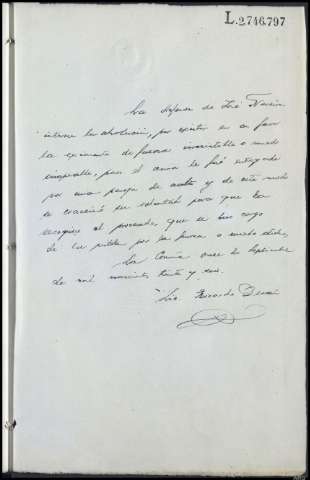 L.2.746.797
La defensa de José
interesa la absolución, por existir en su favor
la eximente de fuerza irresistible o miedo
insuperable, pues el arma le fué entregada
por una pareja de asalto y de este modo
se coaccionó su voluntad para que la
recogiese el procesado, que se hizo cargo
de la pistola por la fuerza o miedo dicho.
La Coruña once de Septiembre
de mil novecientos treinta y seis.
Lic. Ricardo